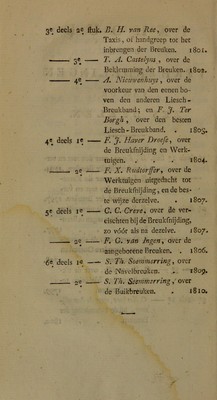 3e. deels 2e. stuk. B. H. van Ree, over de
Taxis, of handgreep tot het
inbrengen der Breuken. 1801.
—— 3e. — T. A. Castelyns, over de
Beklemming der Breuken. 1802.
—— 4e. — A. Nieuwenhuys, over de
voorkeur van den eenen bo-
ven den anderen Liesch-
Breukband; en F. J. Ter
Borgh, over den besten
Liesch-Breukband. . 1803.
4e. deels 1e. — F. J. Haver Droese, over
de Breuksnijding en Werk-
tuigen. . . . 1804.
—— 2e. — F. X. Rudtorffer, over de
Werktuigen uitgedacht tot
de Breuksnijding, en de bes-
te wijze derzelve. . 1807.
5e. deels 1e. — C. C. Creve, over de ver-
eischten bij de Breuksnijding,
zo vóór als na dezelve. 1807.
—— 2e. — F. G. van Ingen, over de
aangeborene Breuken. . 1806.
6e. deels 1e. — S. Th. Soemmerring, over
de Navelbreuken. . 1809.
—— 2e. — S. Th. Soemmerring, over
de Buikbreuken. . 1810.